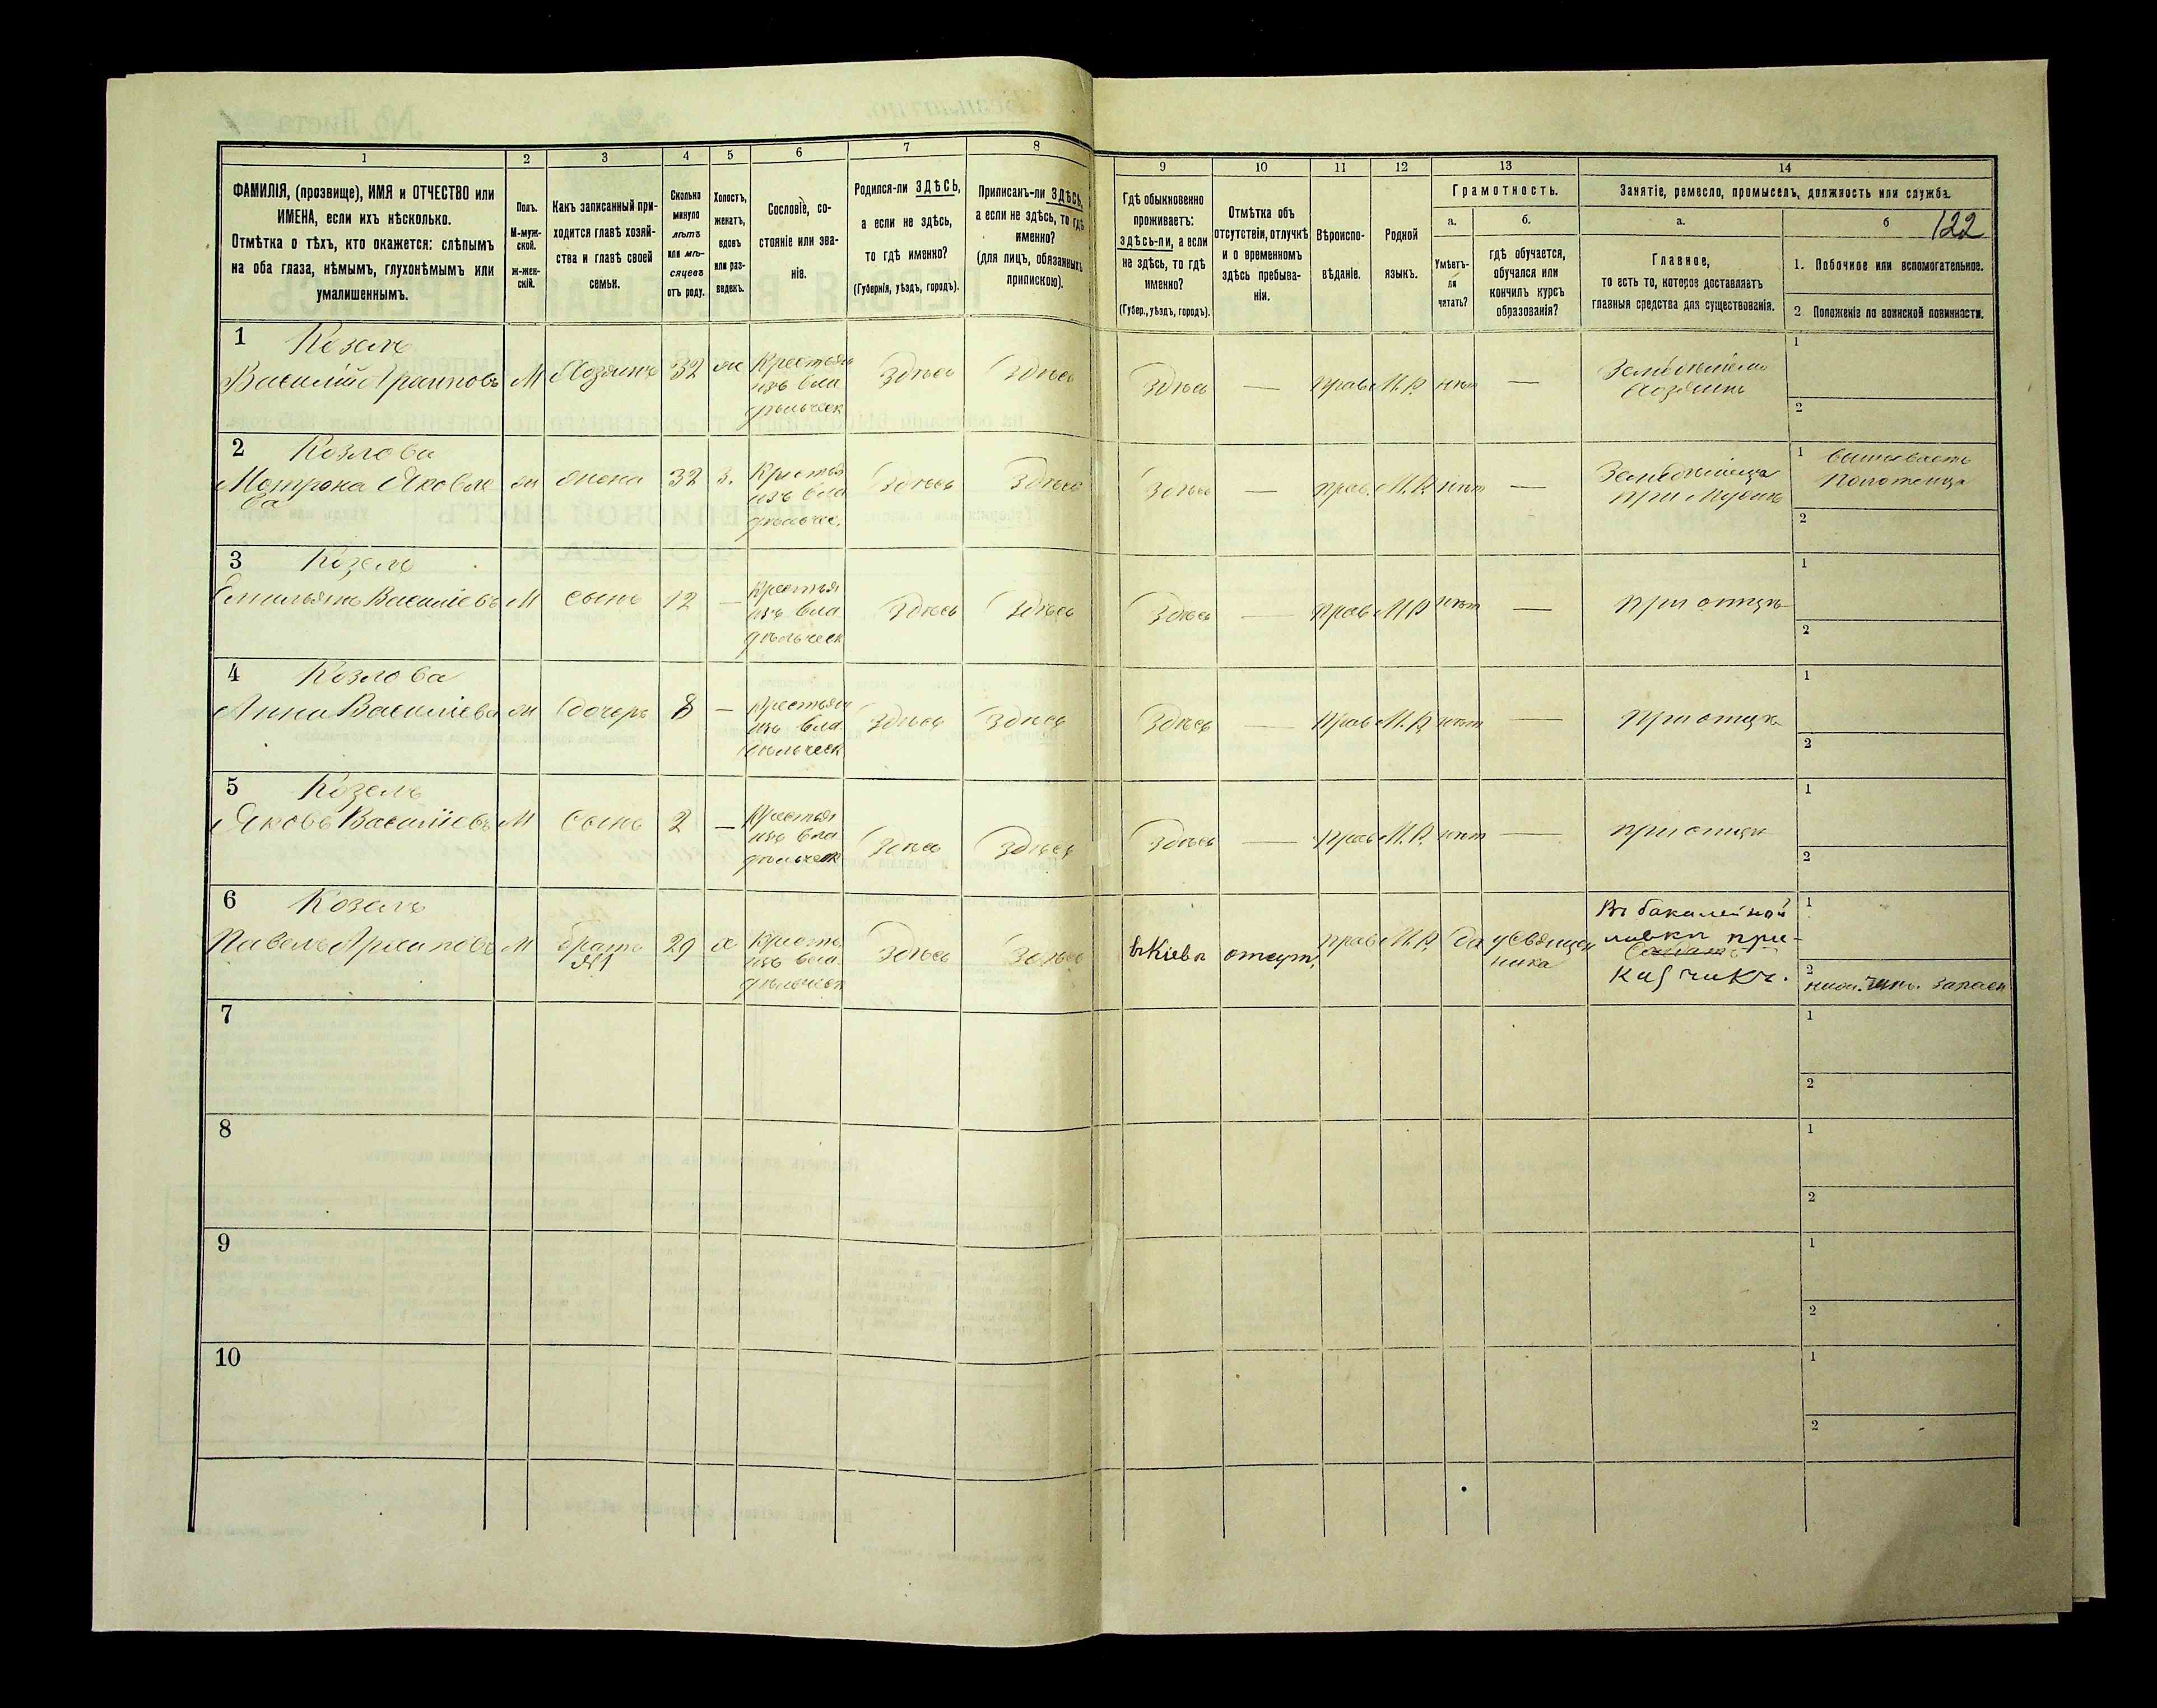 1 2 3 4 5 6 7 8 9 10 11 12 13 14
ФАМИЛІЯ, (прозвище), ИМЯ и ОТЧЕСТВО или
ИМЕНА, если ихъ нѣсколько.
Отмѣтка о тѣхъ, кто окажется: слѣпымъ
на оба глаза, нѣмымъ, глухонѣмымъ или
умалишеннымъ.
Полъ.
М-муж-
ской.
ж-жен-
скій.
Какъ записанный при-
ходится главѣ хозяй-
ства и главѣ своей
семьи.
Сколько
минуло
лѣтъ
или мѣ-
сяцевъ
отъ роду.
Холостъ,
женатъ,
вдовъ
или раз-
веденъ.
Сословіе, со-
стояніе или зва-
ніе.
Родился-ли ЗДѢСЬ,
а если не здѣсь,
то гдѣ именно?
(Губернія, уѣздъ, городъ).
Приписанъ-ли ЗДѢСЬ,
а если не здѣсь, то гдѣ
именно?
(для лицъ, обязанныхъ
припискою).
Гдѣ обыкновенно
проживаетъ:
здѣсь-ли, а если
не здѣсь, то гдѣ
именно?
(Губер., уѣздъ, городъ).
Отмѣтка объ
отсутствіи, отлучкѣ
и о временномъ
здѣсь пребыва-
ніи.
Вѣроиспо-
вѣданіе.
Родной
языкъ.
Грамотность.
а. б.
Умѣетъ-
ли
читать?
гдѣ обучается,
обучался или
кончилъ курсъ
образованія?
Занятіе, ремесло, промыселъ, должность или служба.
а. б 122
Главное,
то есть то, которое доставляетъ
главныя средства для существованія.
1. Побочное или вспомогательное.
2 Положеніе по воинской повинности.
1 Козелъ
Василій Архиповъ М Хозяинъ 32 ж Крестьян
изъ вла
дѣльческ
Здѣсь Здѣсь Здѣсь — прав М.Р. нѣт —
Земледѣлецъ
хозяинъ
1
2
2 Козлова
Мотрона Яковле
ва
ж жена 32 з. Крестья
изъ вла
дѣльчес.
Здѣсь Здѣсь Здѣсь — прав. М.Р. нѣт —
Земледѣлица
при мужѣ
1
полотенца
2
3 Козелъ
Емильянъ Василіевъ М сынъ 12 — Крестья
изъ вла
дѣльческ
Здѣсь Здѣсь Здѣсь — прав М.Р нѣт — при отцѣ
1
2
4 Козлова
Анна Василіева ж дочерь 8 — Крестьян
изъ вла
дѣльческ
Здѣсь Здѣсь Здѣсь — прав М.Р. нѣт — при отцѣ
1
2
5 Козелъ
Яковъ Василіевъ М сынъ 2 — Крестья
изъ вла
дѣльческ
Здѣсь Здѣсь Здѣсь — прав М.Р. нѣт — при отцѣ
1
2
6 Козелъ
Павелъ Архиповъ М братъ
№1
29 х Кресть
изъ вла
дѣльческ
Здѣсь Здѣсь въ Кіевѣ отсут. прав М.Р. да у Священ
ника
Въ бакалейной
лавкѣ при-
казчикъ.
1
2
нижн. чинъ. запаса
7 1
2
8 1
2
9 1
2
10 1
2